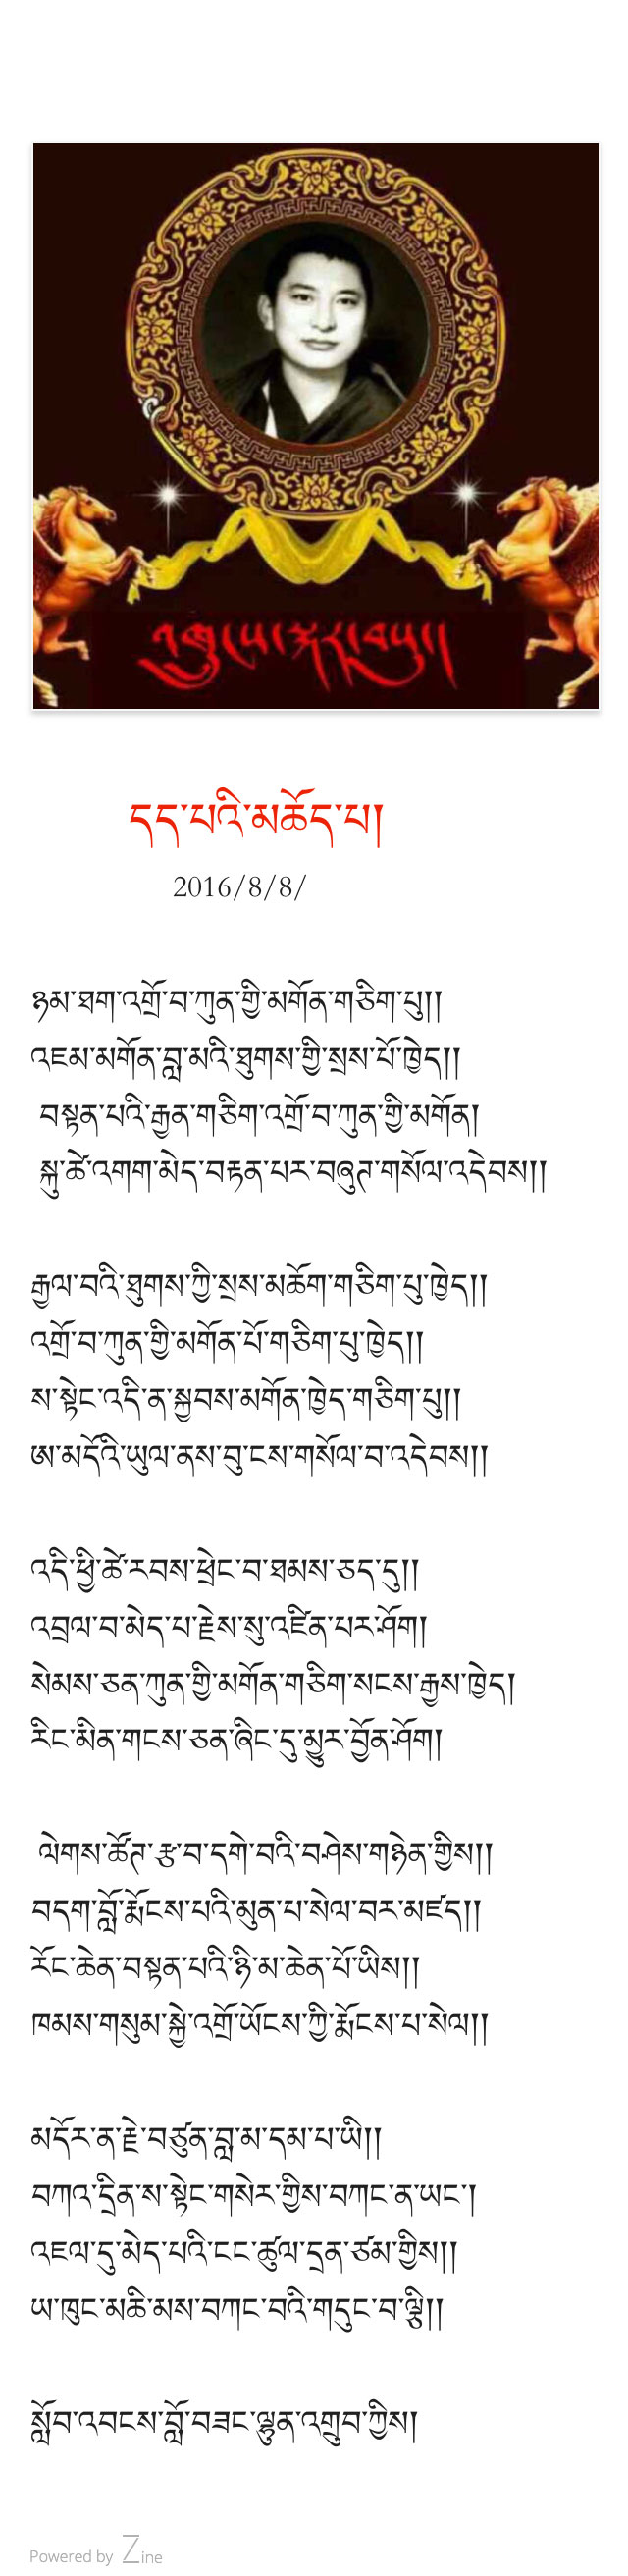 དད་པའི་མཆོད་པ།
2016/8/8/
ཉམ་ཐག་འགྲོ་བ་ཀུན་གྱི་མགོན་གཅིག་པུ།།
འཇམ་མགོན་བླ་མའི་ཐུགས་ཀྱི་སྲས་པོ་ཁྱེད།།
བསྟན་པའི་རྒྱན་གཅིག་འགྲོ་བ་ཀུན་གྱི་མགོན།
སྐུ་ཚེ་འགག་མེད་བརྟན་པར་བཞུཊ་གསོལ་འདེབས།།
རྒྱལ་བའི་ཐུགས་ཀྱི་སྲས་མཆོག་གཅིག་པུ་ཁྱེད།།
འགྲོ་བ་ཀུན་གྱི་མགོན་པོ་གཅིག་པུ་ཁྱེད།།
ས་སྟེང་འདི་ན་སྐྱབས་མགོན་ཁྱེད་གཅིག་པུ།།
ཨ་མདོའི་ཡུལ་ནས་བུ་ངས་གསོལ་བ་འདེབས།།
འདི་ཕྱི་ཚེ་རབས་ཕྲེང་བ་ཐམས་ཅད་དུ།།
འབྲལ་བ་མེད་པ་རྗེས་སུ་འཛིན་པར་ཤོག།
སེམས་ཅན་ཀུན་གྱི་མགོན་གཅིག་སངས་རྒྱས་ཁྱེད།
རིང་མིན་གངས་ཅན་ཞིང་དུ་མྱུར་བྱོན་ཤོག།
ལེགས་ཚོཊ་རྩ་བ་དགེ་བའི་བཤེས་གཉེན་གྱིས།།
བདག་བློ་རྨོངས་པའི་མུན་པ་སེལ་བར་མཛད།།
རོང་ཆེན་བསྟན་པའི་ཉི་མ་ཆེན་པོ་ཡིས།།
ཁམས་གསུམ་སྐྱེ་འགྲོ་ཡོངས་ཀྱི་རྨོངས་པ་སེལ།།
མདོར་ན་རྗེ་བཙུན་བླ་མ་དམ་པ་ཡི།།
བཀའ་དྲིན་ས་སྟེང་གསེར་གྱིས་བཀང་ན་ཡང་།
འཇལ་དུ་མེད་པའི་ངང་ཚུལ་དྲན་ཙམ་གྱིས།།
ཡ་ཁུང་མཆི་མས་བཀང་བའི་གདུང་བ་ལྕི།།
སློབ་འབངས་བློ་བཟང་ལྷུན་འགྲུབ་ཀྱིས།
Powered by Zine